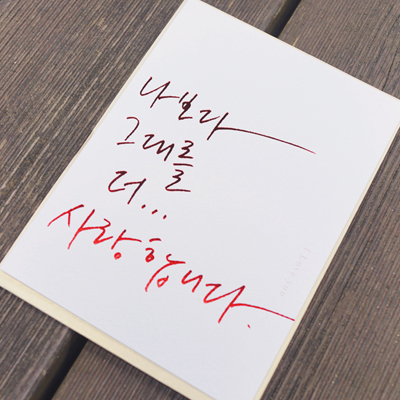 나보다
그대를
더...
사랑합니다.